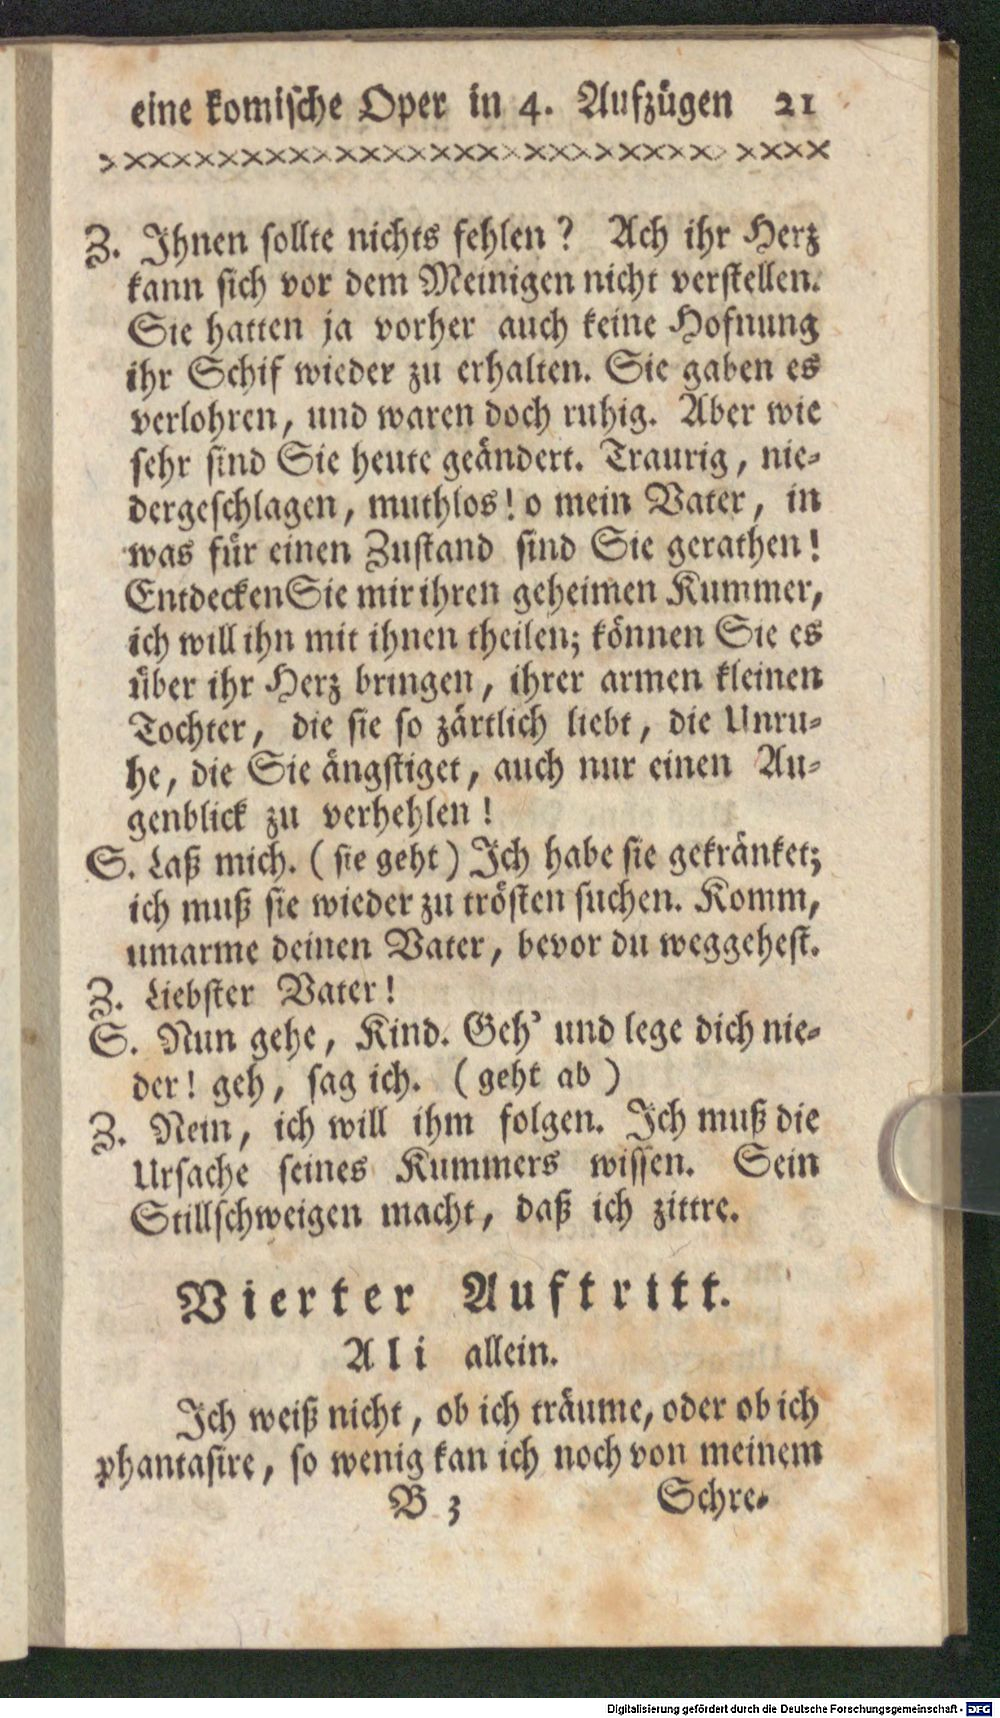 eine komische Oper in 4. Aufzügen 21
Z. Ihnen sollte nichts fehlen? Ach ihr Herz
kann sich vor dem Meinigen nicht verstellen.
Sie hatten ja vorher auch keine Hofnung
ihr Schif wieder zu erhalten. Sie gaben es
verlohren, und waren doch ruhig. Aber wie
sehr sind Sie heute geändert. Traurig, nie-
dergeschlagen, muthlos! o mein Vater, in
was für einen Zustand sind Sie gerathen!
Entdecken Sie mir ihren geheimen Kummer,
ich will ihn mit ihnen theilen; können Sie es
über ihr Herz bringen, ihrer armen kleinen
Tochter, die sie so zärtlich liebt, die Unru-
he, die Sie ängstiget, auch nur einen Au-
genblick zu verhehlen!
S. Laß mich. (sie geht) Ich habe sie gekränket;
ich muß sie wieder zu trösten suchen. Komm,
umarme deinen Vater, bevor du weggehest.
Z. Liebster Vater!
S. Nun gehe, Kind. Geh' und lege dich nie-
der! geh, sag ich. (geht ab)
Z. Nein, ich will ihm folgen. Ich muß die
Ursache seines Kummers wissen. Sein
Stillschweigen macht, daß ich zittre.
Vierter Auftritt.
Ali allein.
Ich weiß nicht, ob ich träume, oder ob ich
phantasire, so wenig kan ich noch von meinem
B 3 Schre-
Digitalisierung gefördert durch die Deutsche Forschungsgemeinschaft - DFG